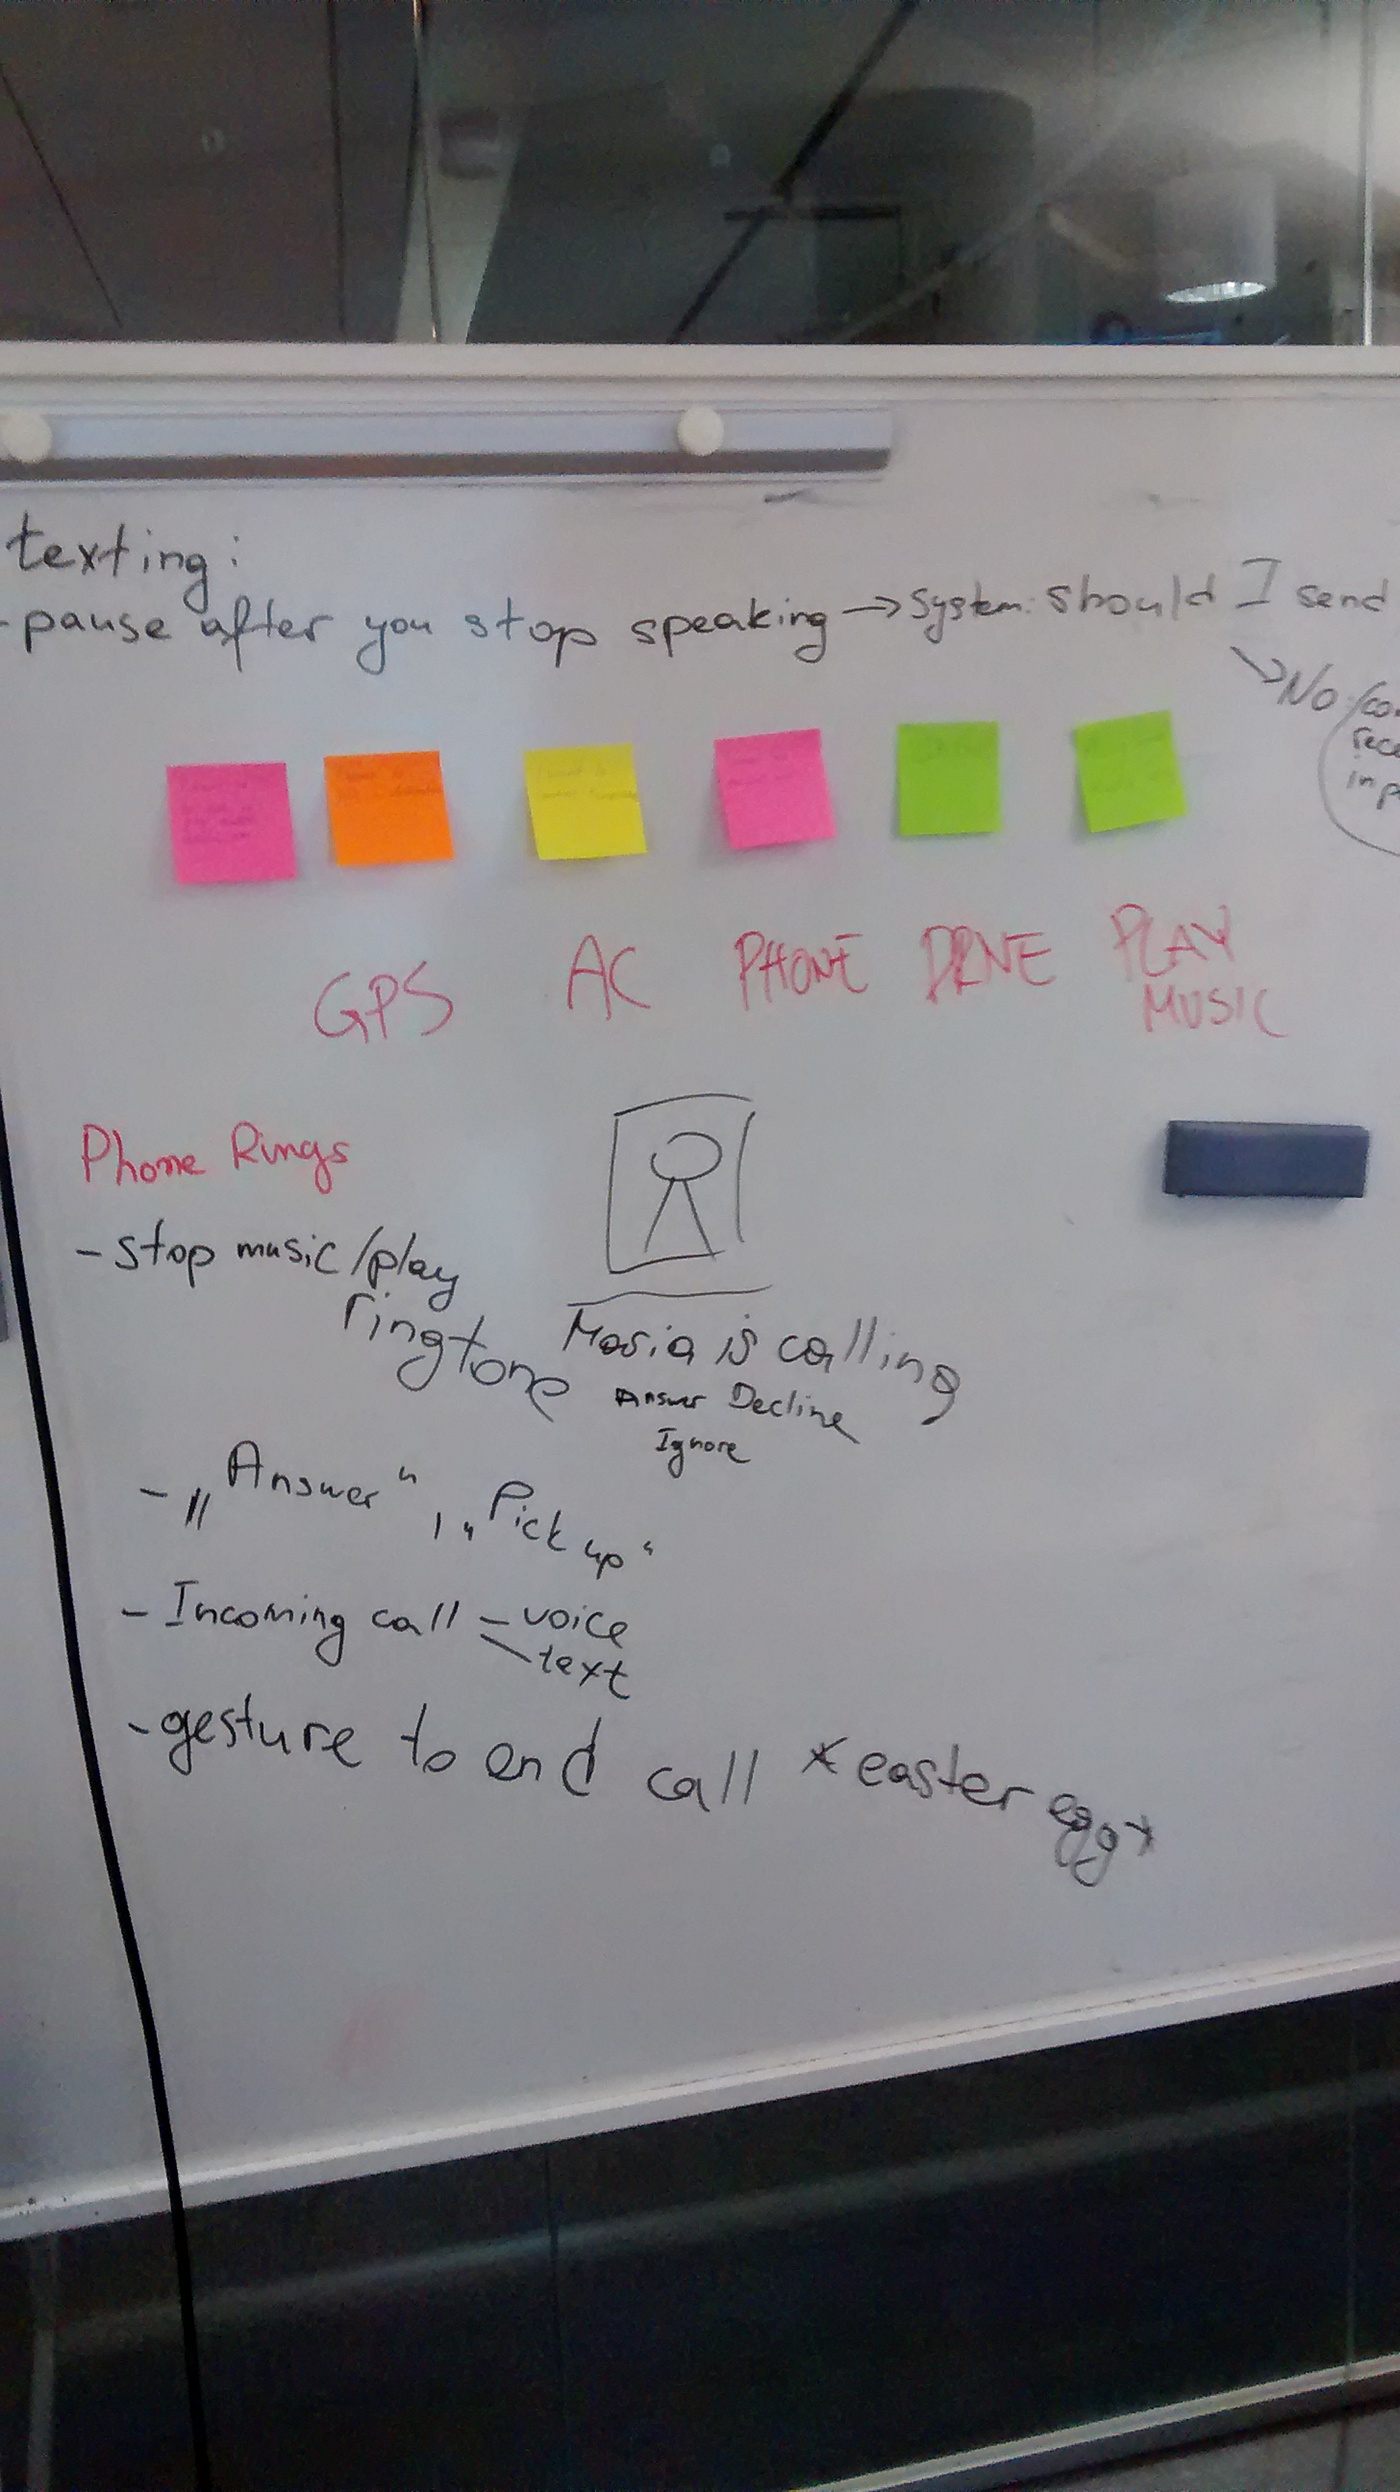 texting:
-pause after you stop speaking → System: should I send
↘ No /co
rece
inp
GPS
AC
PHONE
DRIVE
PLAY
MUSIC
Phone Rings
- stop music/play
ringtone
Maria is calling
Answer Decline
Ignore
- „Answer“, „Pick up“
- Incoming call - voice
\ text
- gesture to end call *easter egg*